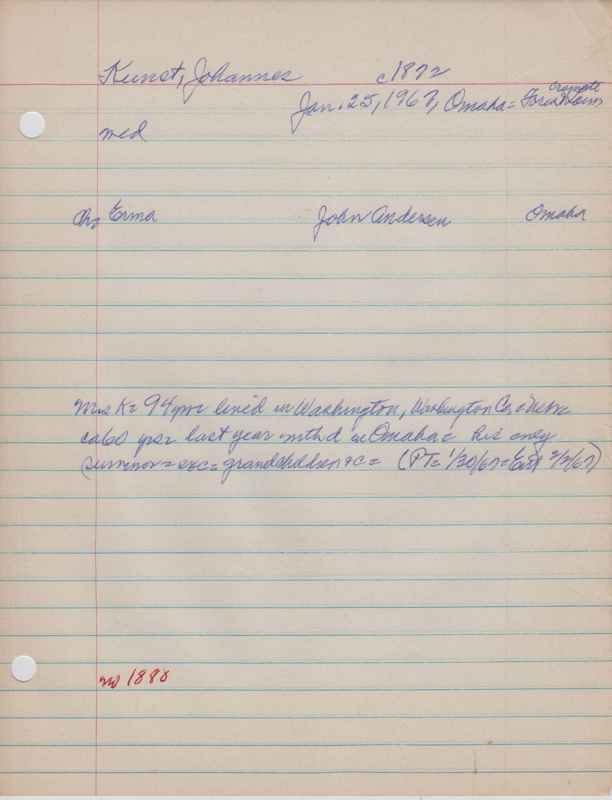 Kunst, Johannes c1872
Cremate
Jan. 25, 1967, Omaha = Forest Lawn
med
Erma John Andersen Omaha
Mr K = 94 yrs = lived in Washington, Washington Co = Nebr
ca 60 yrs = last year with d in Omaha = his only
survivor = exc = grandchildren &c = (PT = 1/30/67 = Ent 2/2/67)
no 1880